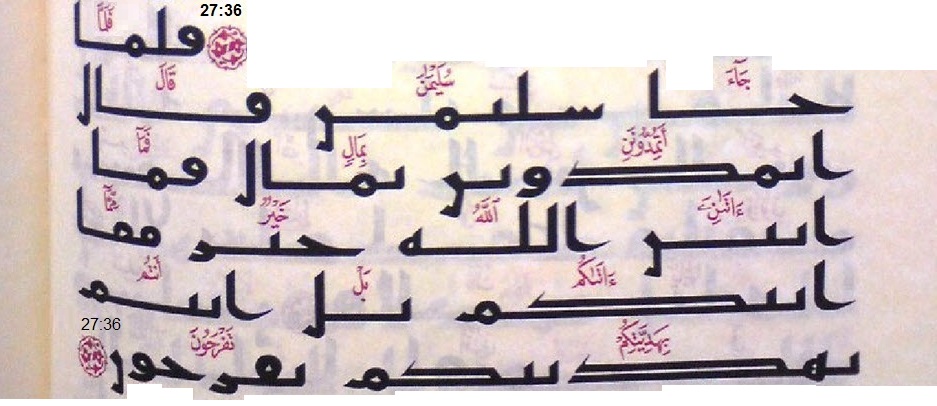 27:36
فَلَمَّا
فلما
جَآءَ سُلَيْمَٰنَ قَالَ
جا سليمن قال
أَتُمِدُّونَنِ بِمَالٍ فَمَآ
اتمدونن بمال فما
ءَاتَىٰنِۦَ ٱللَّهُ خَيْرٌ مِّمَّآ
اتىن الله خير مما
ءَاتَىٰكُم بَلْ أَنتُم
اتىكم بل انتم
27:36
بِهَدِيَّتِكُمْ تَفْرَحُونَ
بهديتكم تفرحون